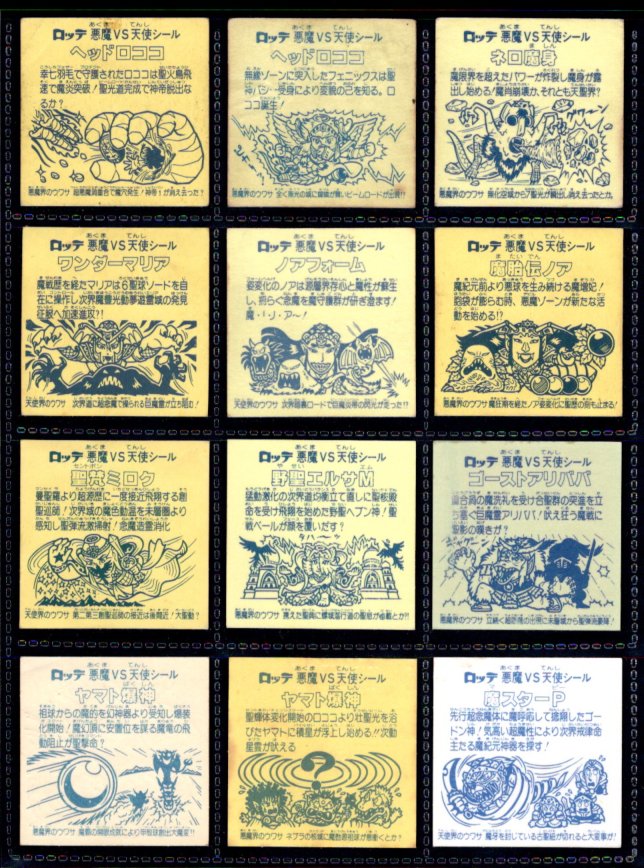 ロッテ 悪魔VS天使シール
ヘッドロココ
幸七羽毛で守護されたロココは聖火鳥飛
速で魔炎突破!聖光道完成で神帝脱出な
るか?
悪魔界のウワサ 超悪魔洞番合で魔穴発生!神帝?が消え去った?
ロッテ 悪魔VS天使シール
ヘッドロココ
無縁ゾーンに突入したフェニックスは聖
神パシー受身により変貌の己を知る。ロ
ココ誕生!
悪魔界のウワサ
ロッテ 悪魔VS天使シール
ネロ魔身
魔限界を超えたパワーが炸裂し魔身が露
出し始める!魔肖崩壊か、それとも天聖界?
グワァーン
悪魔界のウワサ
ロッテ 悪魔VS天使シール
ワンダーマリア
魔戦歴を経たマリアは6聖球ノードを自
在に操作し次界魔豊光動夢遊霊域の発見
征服へ加速進攻?!
天使界のウワサ 次界道に超念魔で操られる巨魔霊が立ち阻む!
ロッテ 悪魔VS天使シール
ノアフォーム
姿変化のノアは源層界存心と魔性が蘇生
し、招らく悪魔を魔守護群が研ぎ澄ます!
魔・I・J・ア〜!
天使界のウワサ 次界暗裏ロードで巨魔炎帝の閃光が走った!?
ロッテ 悪魔VS天使シール
魔胎伝ノア
魔紀元前より悪球を生み続ける魔増妃!
胞袋が膨らむ時、悪魔ゾーンが新たな活
動を始める!?
天使界のウワサ 魔狂期を経たノア姿変化に聖歴の刻も止まる!
ロッテ 悪魔VS天使シール
聖梵ミロク
曼聖羅より超源歴に一度接近飛翔する創
聖巡師!次界城の魔色動温を未層圏より
感知し聖弾流激掃射!念魔造霊消化
天使界のウワサ 第二第三創聖巡師の接近は後間近!大聖動?
ロッテ 悪魔VS天使シール
野聖エルサM
猛動激化の次界道均衡立て直しに聖梃殿
命を受け飛翔を始めた野聖ヘブン神!聖
戦ベールが顔を覆いだす?
悪魔界のウワサ
ロッテ 悪魔VS天使シール
ゴーストアリババ
合洞の魔洗礼を受け合聖群の突進を立
ち塞ぐ巨魔霊アリババ!吠え狂う魔戦に
聖影の嘆きが?
悪魔界のウワサ
ロッテ 悪魔VS天使シール
ヤマト爆神
祖球からの魔的を幻神器より受知し爆装
化開始!魔幻頂に安置位を謀る魔竜の飛
動阻止が聖撃命?
悪魔界のウワサ
ロッテ 悪魔VS天使シール
ヤマト爆神
聖輝体変化開始のロココより壮聖光を浴
びたヤマトに積星が浮上し始める!!次動
星雲が吠える
?
悪魔界のウワサ
ロッテ 悪魔VS天使シール
魔スターP
先行超念魔体に魔呼応して捻翔したゴー
ドン神!気高い超魔性により次界戒律命
主たる魔紀元神器を探す!
天使界のウワサ 魔牙を封じている古聖紐が切れると大変事が!